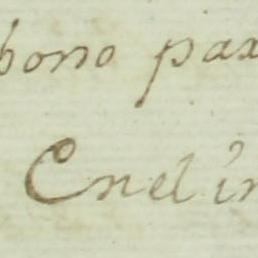 bono pax
Enel in